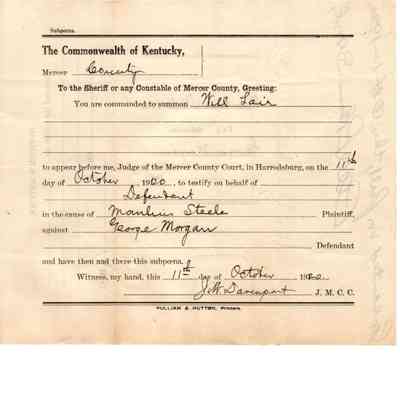 Subpoena.
The Commonwealth of Kentucky,
Mercer County
To the Sheriff or any Constable of Mercer County, Greeting:
You are commanded to summon Will Lair
to appear before me, Judge of the Mercer County Court, in Harrodsburg, on the 11th
day of October 1900, to testify on behalf of
Defendant
in the cause of Steele Plaintiff,
against George Morgan
Defendant
and have then and there this subpoena.
Witness, my hand, this 11th day of October 19
J. W. Davenport J. M. C. C.
PULLIAM & NUTTER, Printers.